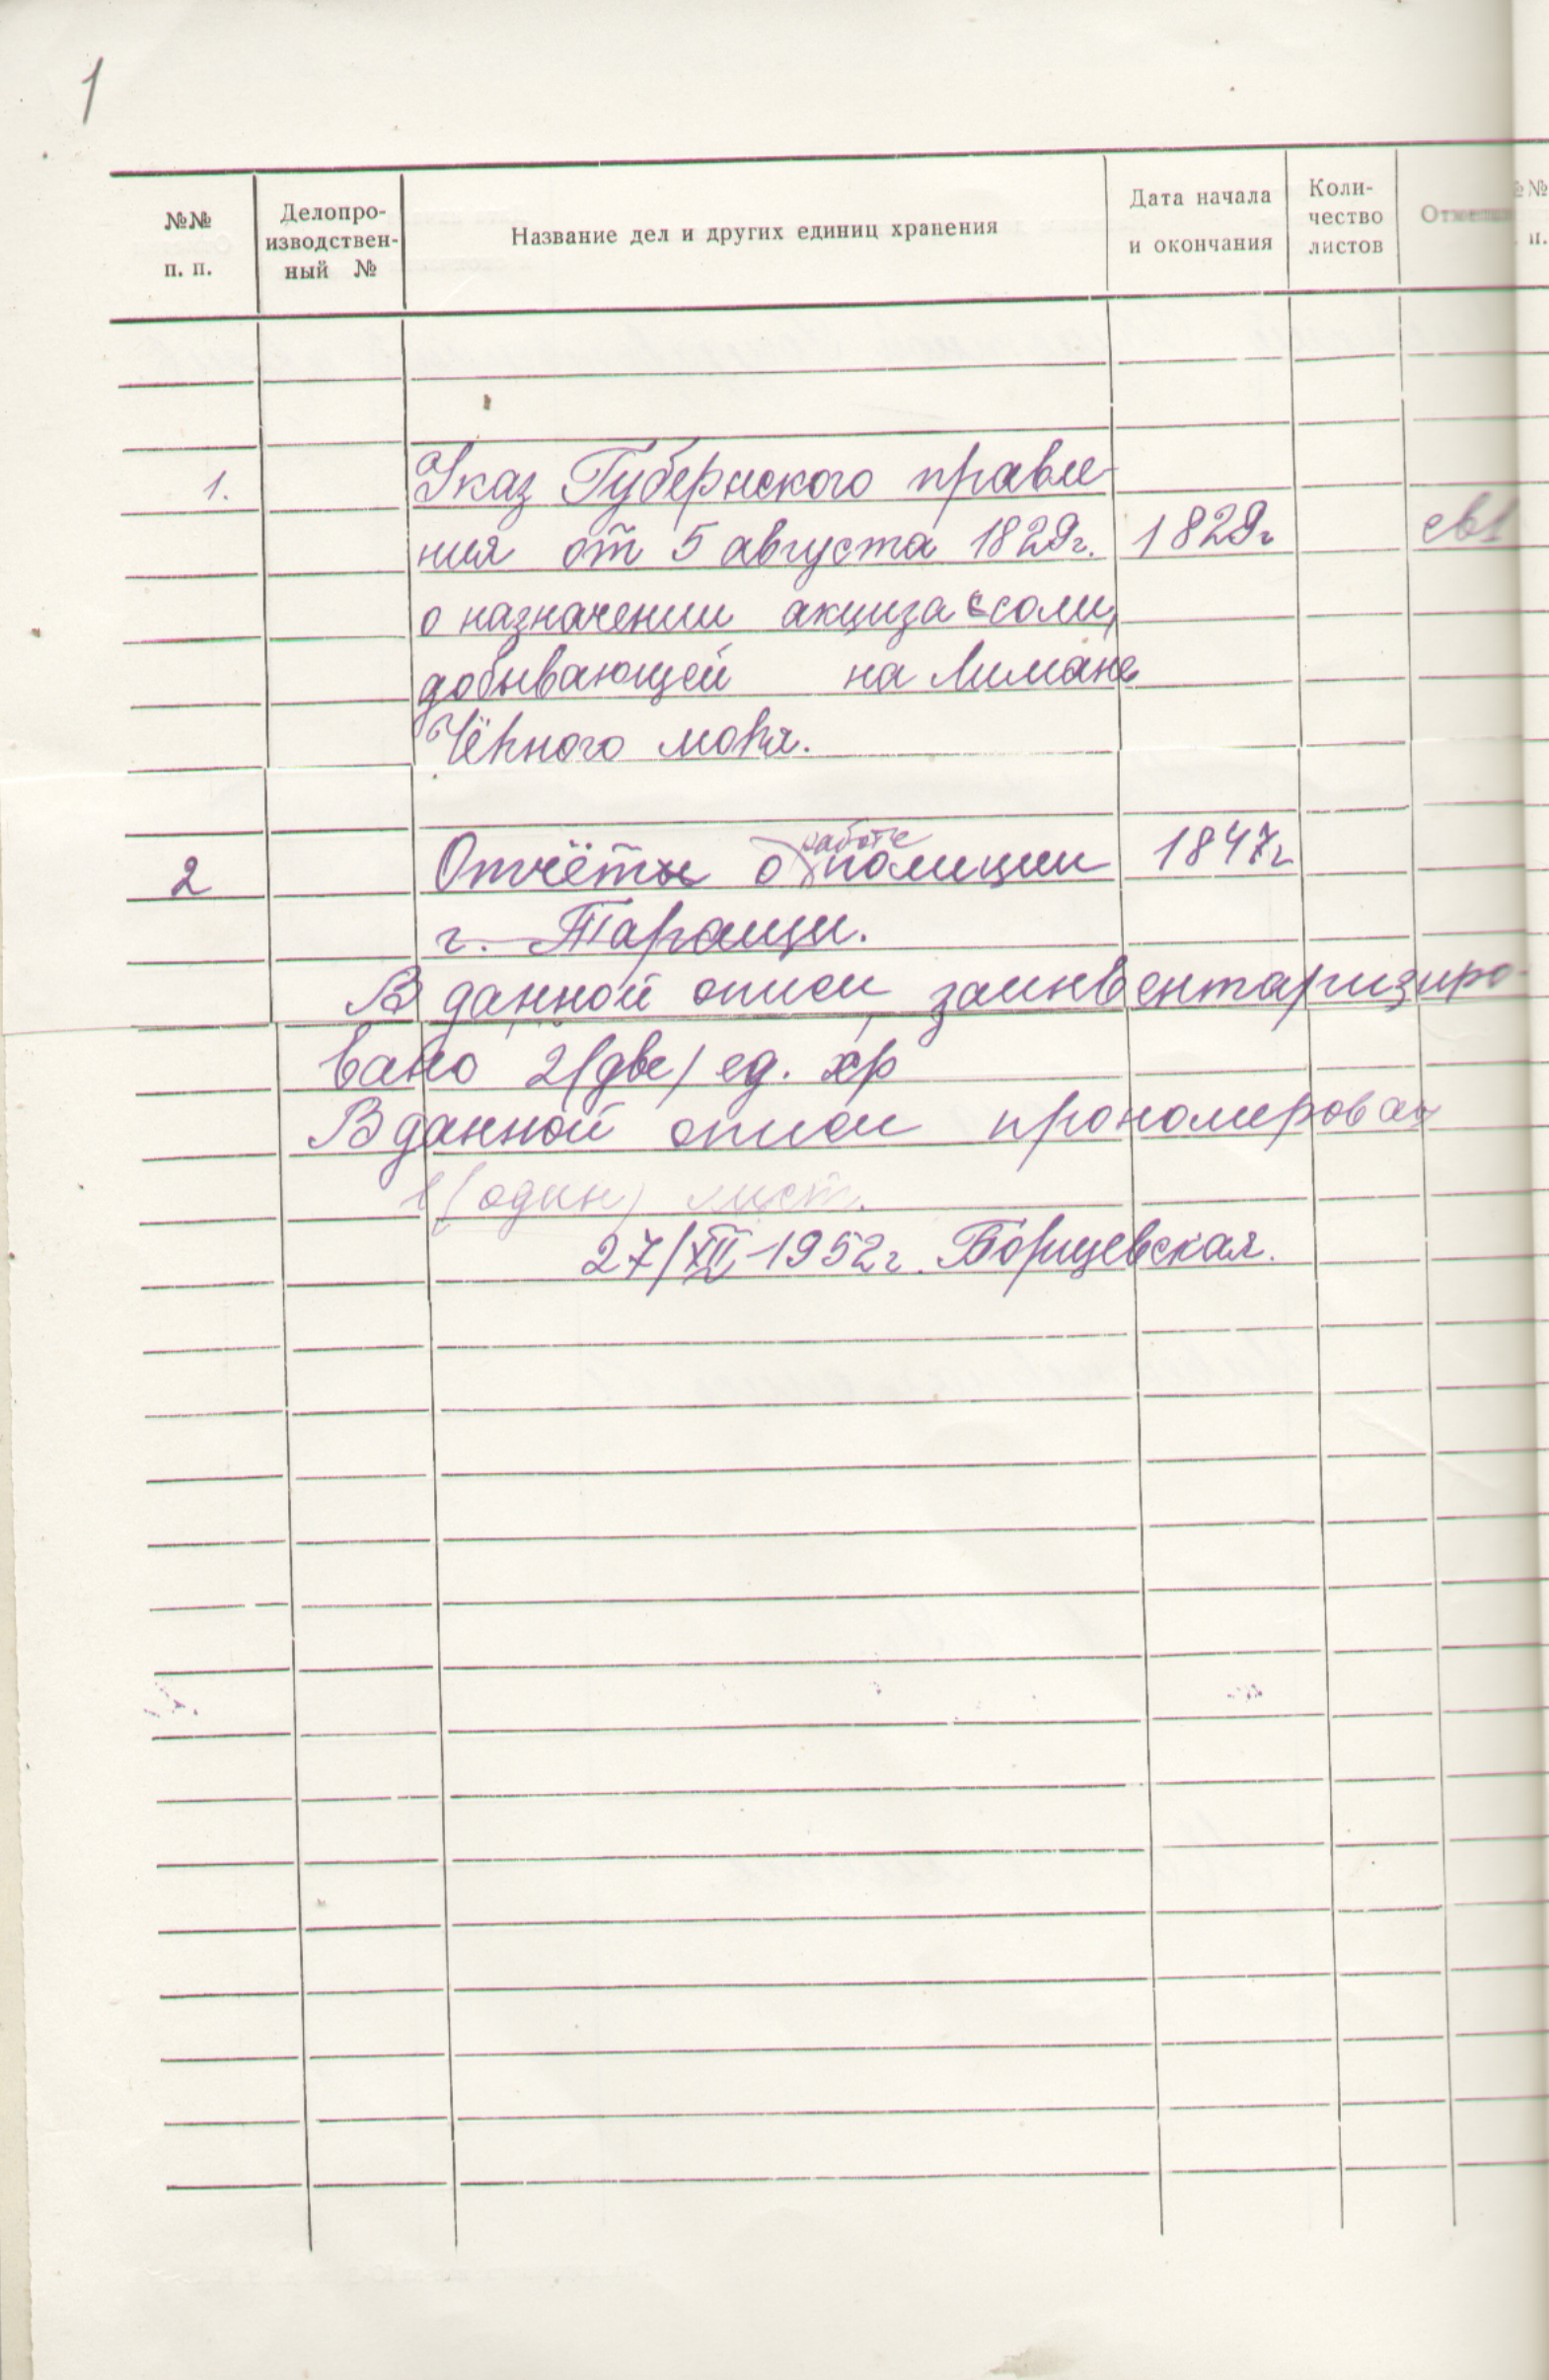 1
№№ п. п.
Делопро-
изводствен-
ный №
Название дел и других единиц хранения
Дата начала
и окончания
Коли-
чество
листов
Отметки
№
п.
1. Указ Губернского правле-
ния от 5 августа 1829г. 1829г
о назначении акциза с соли,
добывающей на Лимане
Чёрного моря.
работе
2 Отчёты о полиции 1847г
г. Таращи.
В данной описи заинвентаризиро-
вано 2 (две) ед. хр
В данной описи прономерован
1 (один) лист.
27/XII-1952г. Борщевская.